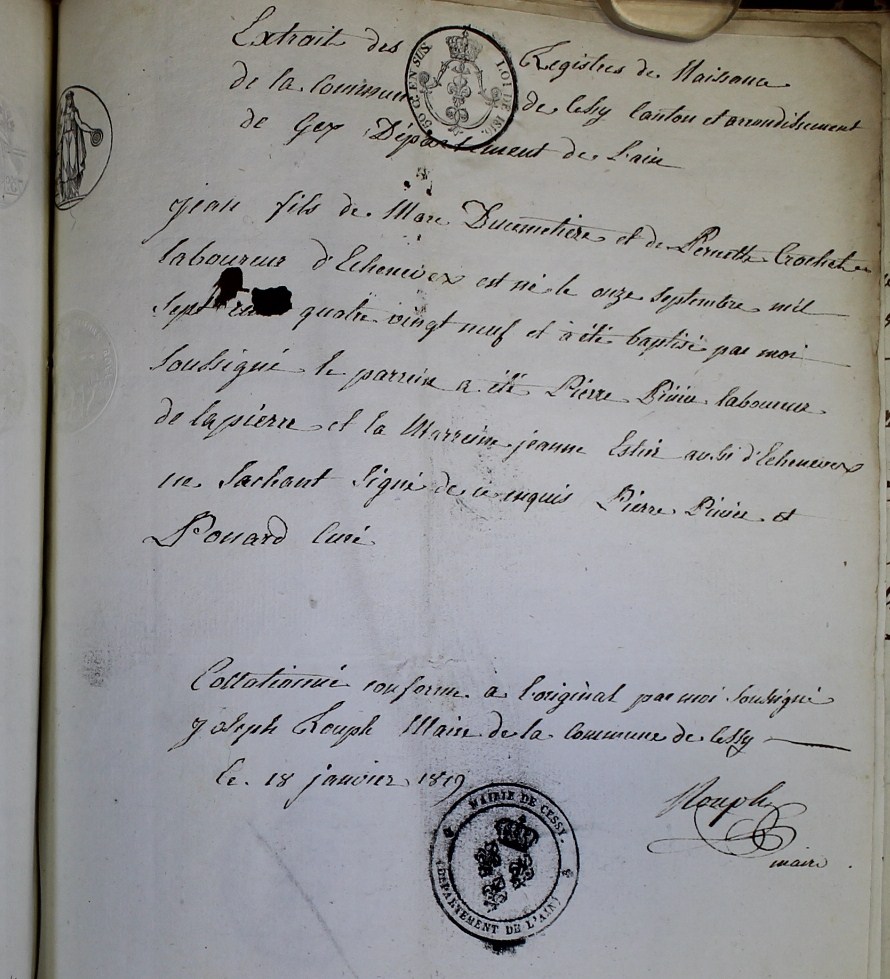 Extrait des Registres de Naisance
de la Commune de Cessy Canton et arrondissement
de Gex Département de L'ain
50 C. EN SUS.
LOI DE 1816.
jean fils de Marc Ducimetière et de Pernette Crochat
laboureur d'Echenevex est né le onze septembre mil
sept quatre vingt neuf et à été baptisé par moi
soussigné le parrein a été Pierre laboureur
de lapierre et la Marreine jeanne d'Echenevex
ne sachant signé de ce enquis Pierre et
Ponard Curé
Collationné conforme à l'original par moi soussigné
Joseph Rouph Maire de la Commune de Cessy
le 18 janvier 1819
Rouph
maire
MAIRIE DE CESSY.
(DÉPARTEMENT DE L'AIN)